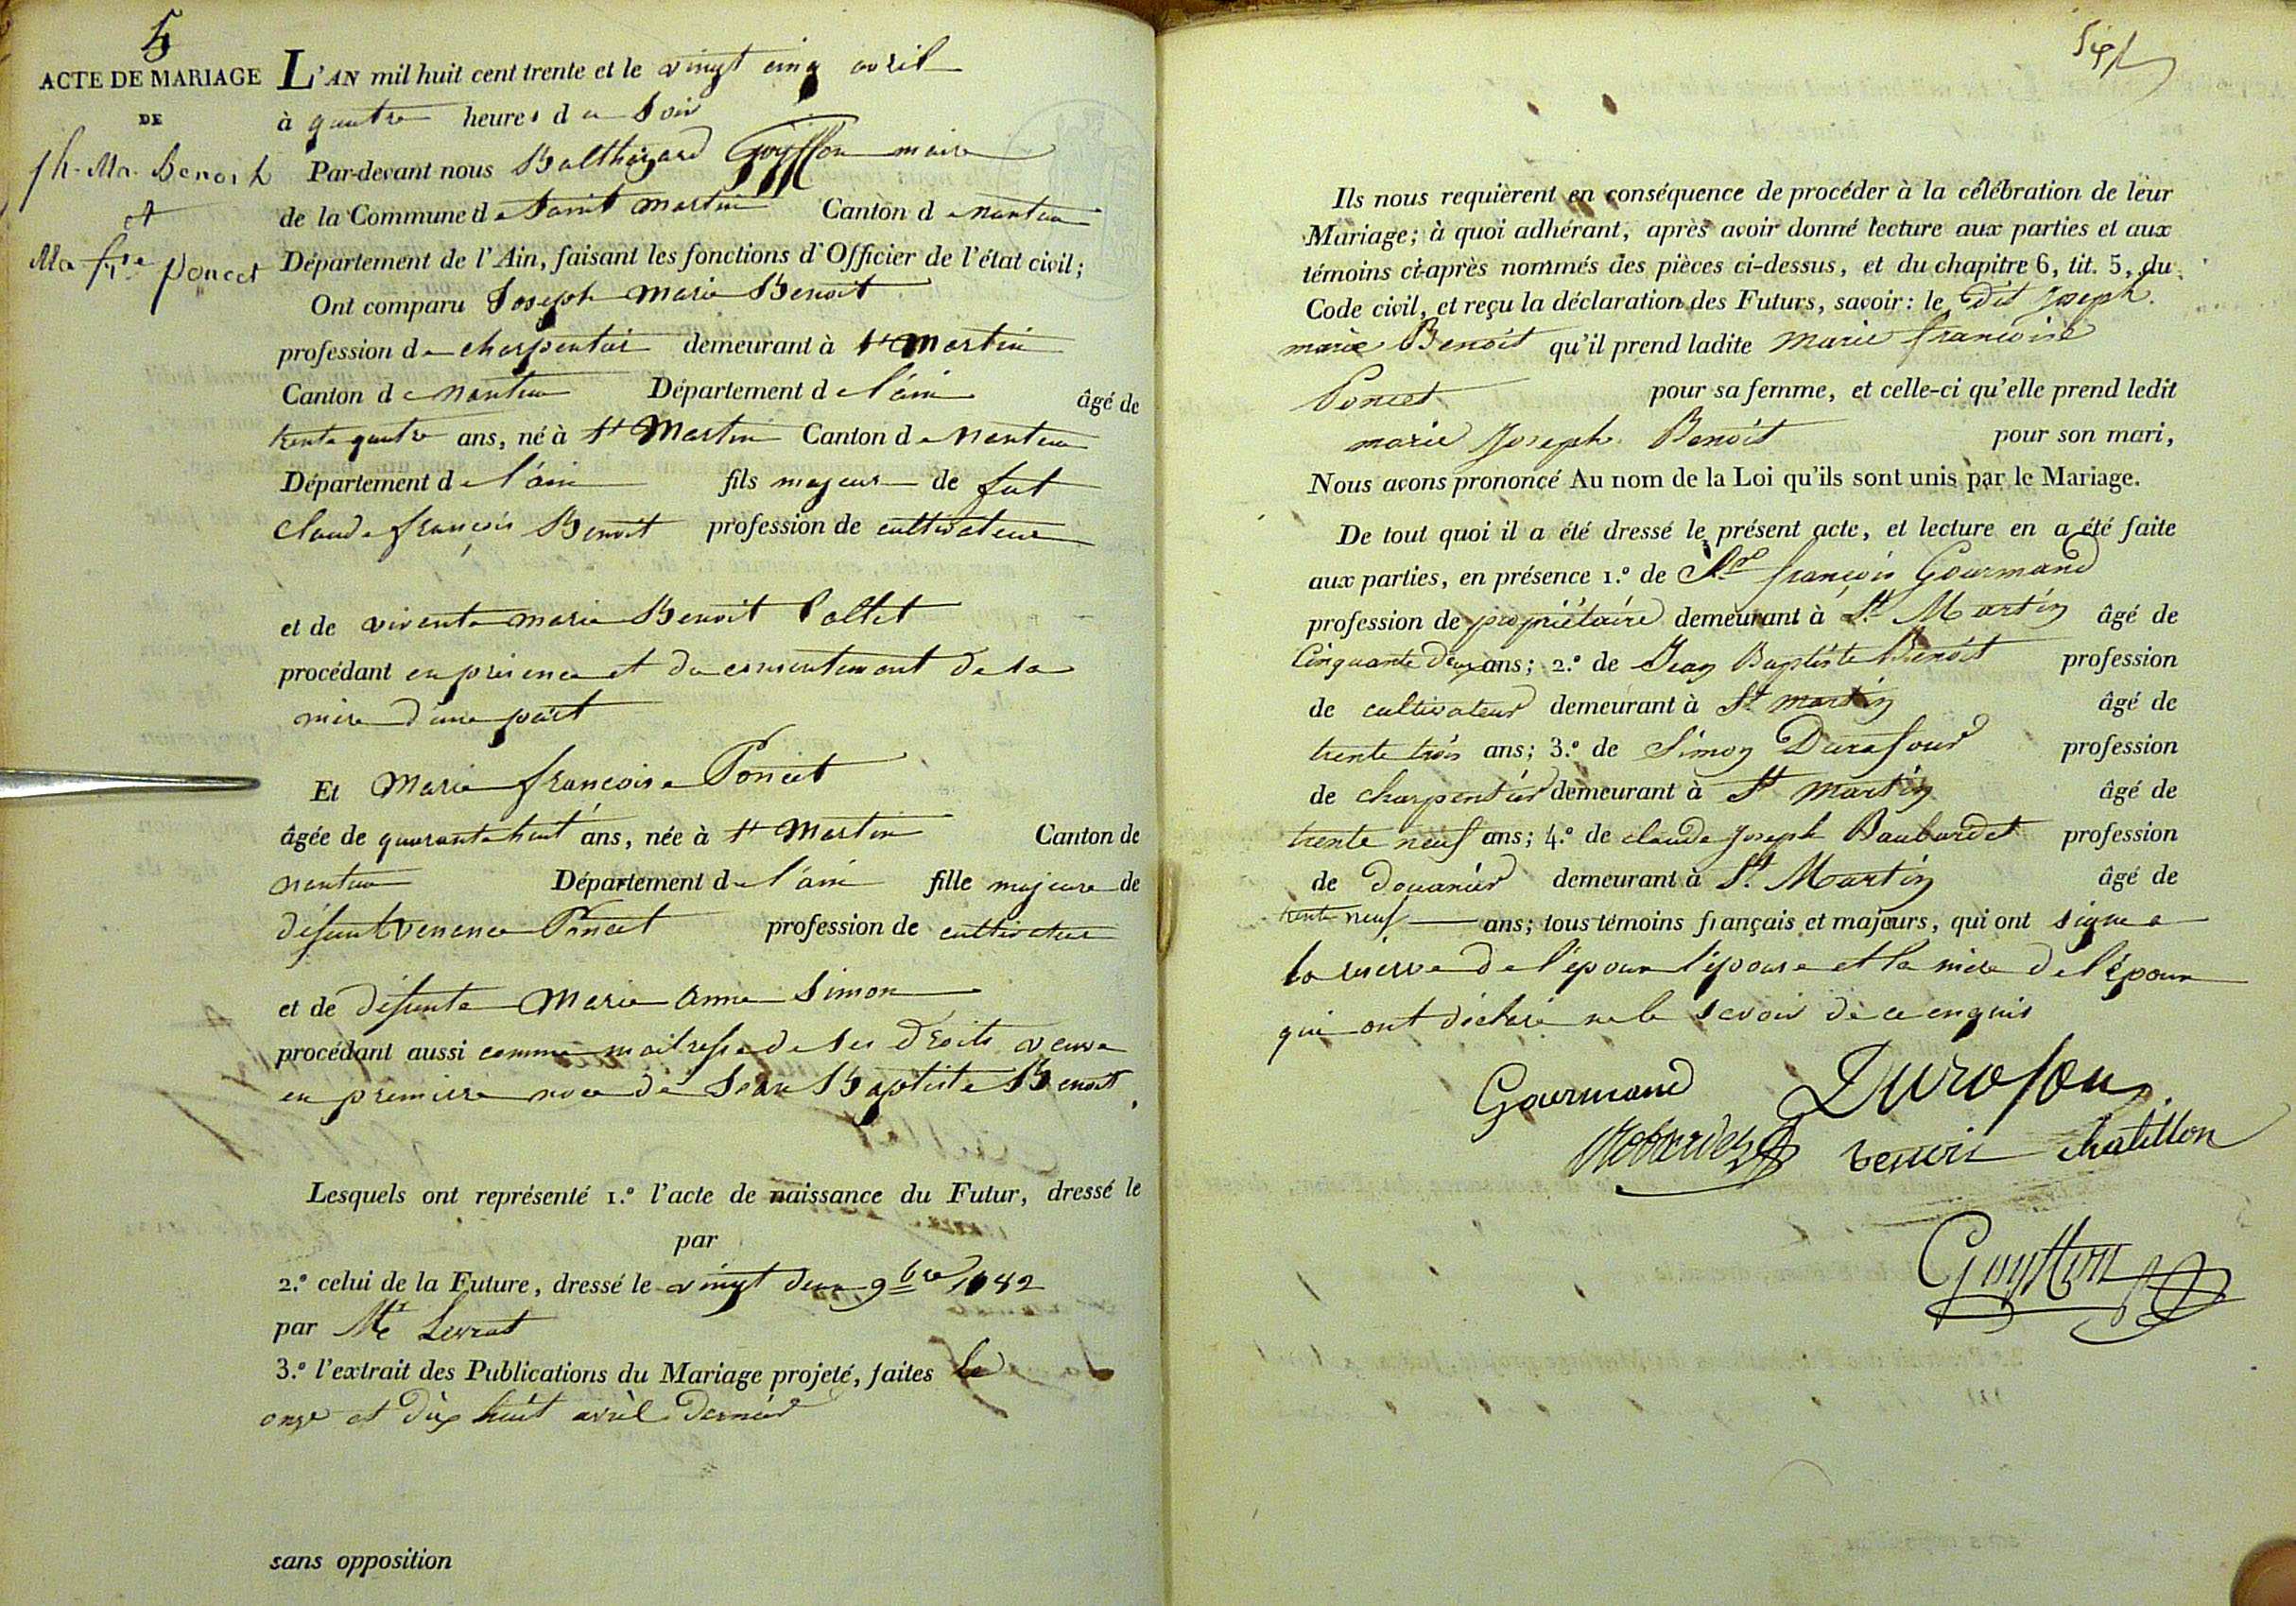 5
ACTE DE MARIAGE
DE
Jh. Ma. Benoit
et
Ma fse Poncet
L'AN mil huit cent trente et le vingt cinq avril
à quatre heures du Soir
Par-devant nous Balthazard Guyffon maire
de la Commune de Saint martin Canton de nantua
Département de l'Ain, faisant les fonctions d'Officier de l'état civil;
Ont comparu Joseph Marie Benoit
profession de charpentier demeurant à St Martin
Canton de Nantua Département de l'ain âgé de
trente quatre ans, né à St Martin Canton de Nantua
Département de l'ain fils majeur de fut
Claude françois Benoit profession de cultivateur
et de vivante marie Benoit Pallet
procédant en présence et du consentement de sa
mère d'une part
Et Marie françoise Poncet
âgée de quarante huit ans, née à St Martin Canton de
nantua Département de l'ain fille majeure de
défunt venence Poncet profession de cultivateur
et de défunte Marie Anne Simon
procédant aussi comme maitresse de ses droits veuve
en première noce de Jean Baptiste Benoit.
Lesquels ont représenté 1.º l'acte de naissance du Futur, dressé le
par
2.º celui de la Future, dressé le vingt deux 9bre 1782
par Mr Levrat
3.º l'extrait des Publications du Mariage projeté, faites le
onze et dix huit avril dernier
sans opposition
Sept
Ils nous requièrent en conséquence de procéder à la célébration de leur
Mariage; à quoi adhérant, après avoir donné lecture aux parties et aux
témoins ci-après nommés des pièces ci-dessus, et du chapitre 6, tit. 5, du
Code civil, et reçu la déclaration des Futurs, savoir: le dit Joseph
marie Benoit qu'il prend ladite Marie françoise
Poncet pour sa femme, et celle-ci qu'elle prend ledit
marie Joseph Benoit pour son mari,
Nous avons prononcé Au nom de la Loi qu'ils sont unis par le Mariage.
De tout quoi il a été dressé le présent acte, et lecture en a été faite
aux parties, en présence 1.º de Sr françois Gourmand
profession de propriétaire demeurant à St Martin âgé de
Cinquante deux ans; 2.º de Jean Baptiste Benoit profession
de cultivateur demeurant à St martin âgé de
trente trois ans; 3.º de Simon Durafour profession
de charpentier demeurant à St martin âgé de
trente neuf ans; 4.º de claude Joseph Baubardet profession
de douanier demeurant à St. Martin âgé de
trente neuf ans; tous témoins français et majeurs, qui ont signé a
la reserve de l'epoux l'epouse et la mère de l'époux
qui ont déclaré ne le savoir de ce enquis
Gourmand Durafour
benoit chatillon
Guyffon